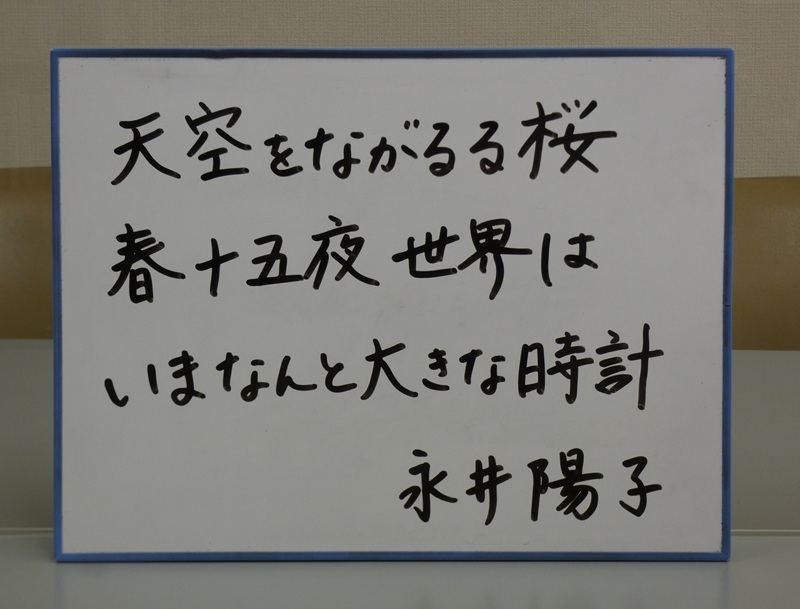 天空をながるる桜
春十五夜 世界は
いまなんと大きな時計
永井陽子